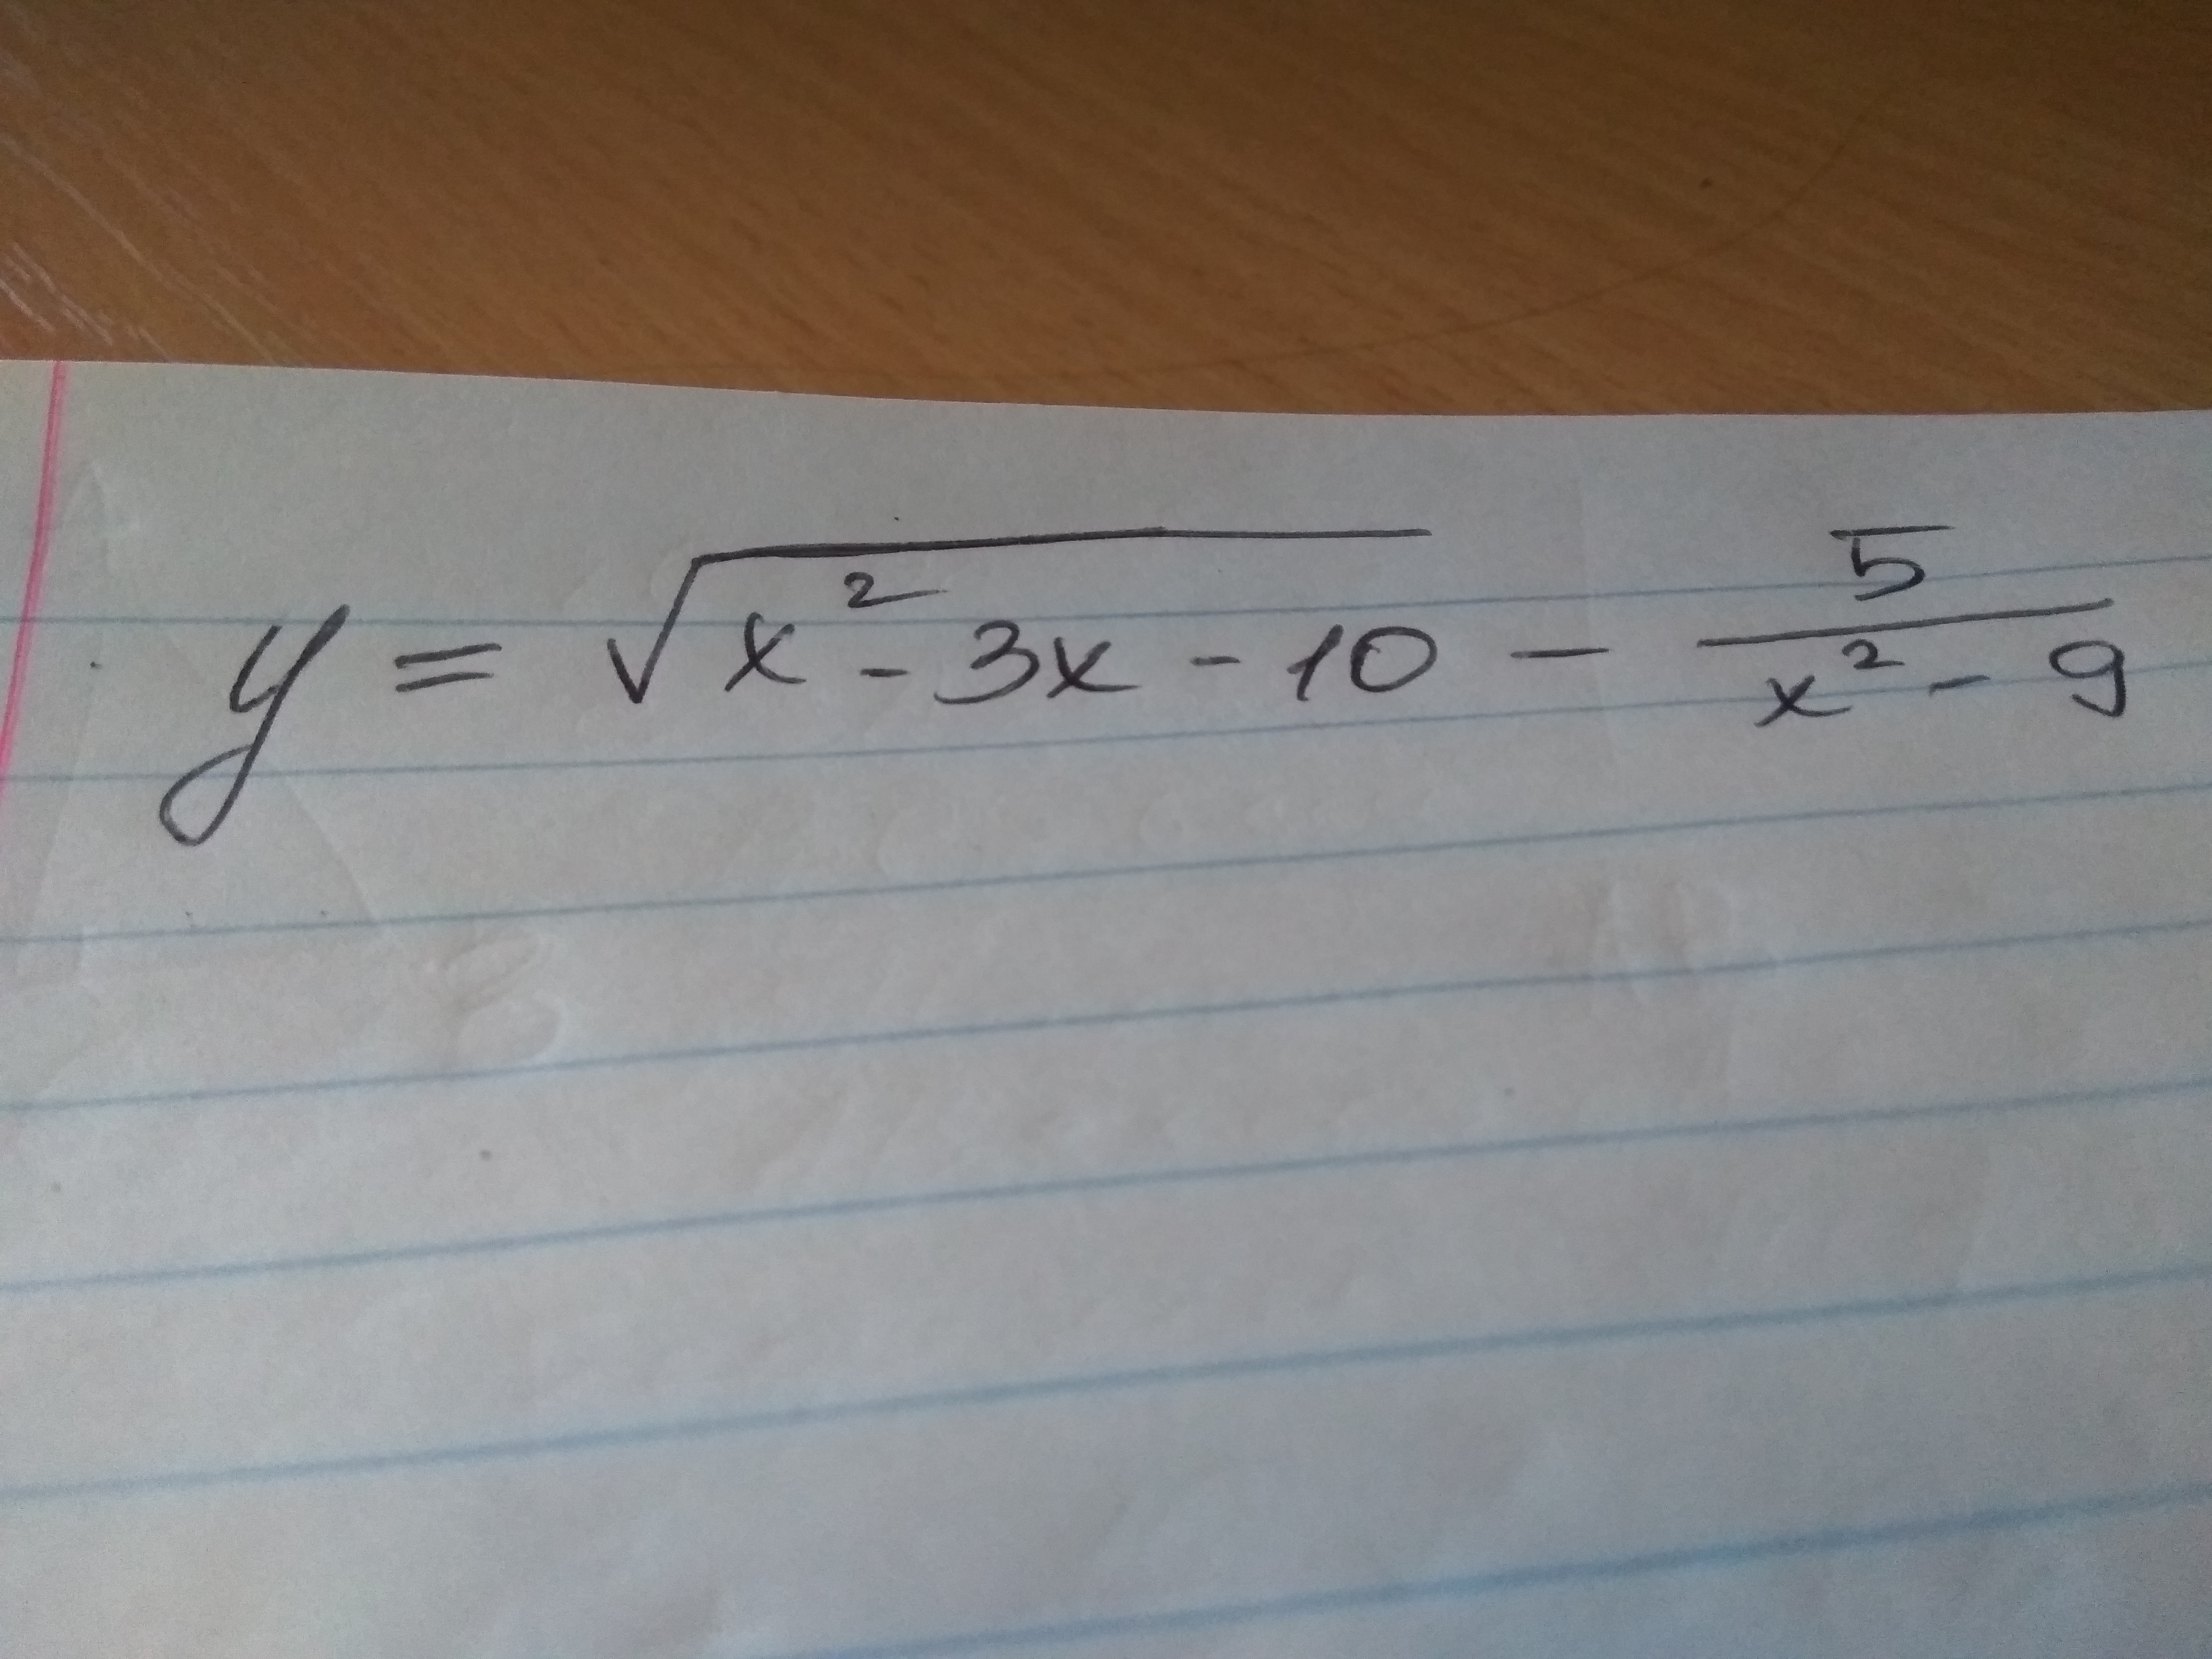 y = √(x² - 3x - 10) - 5/(x² - 9)